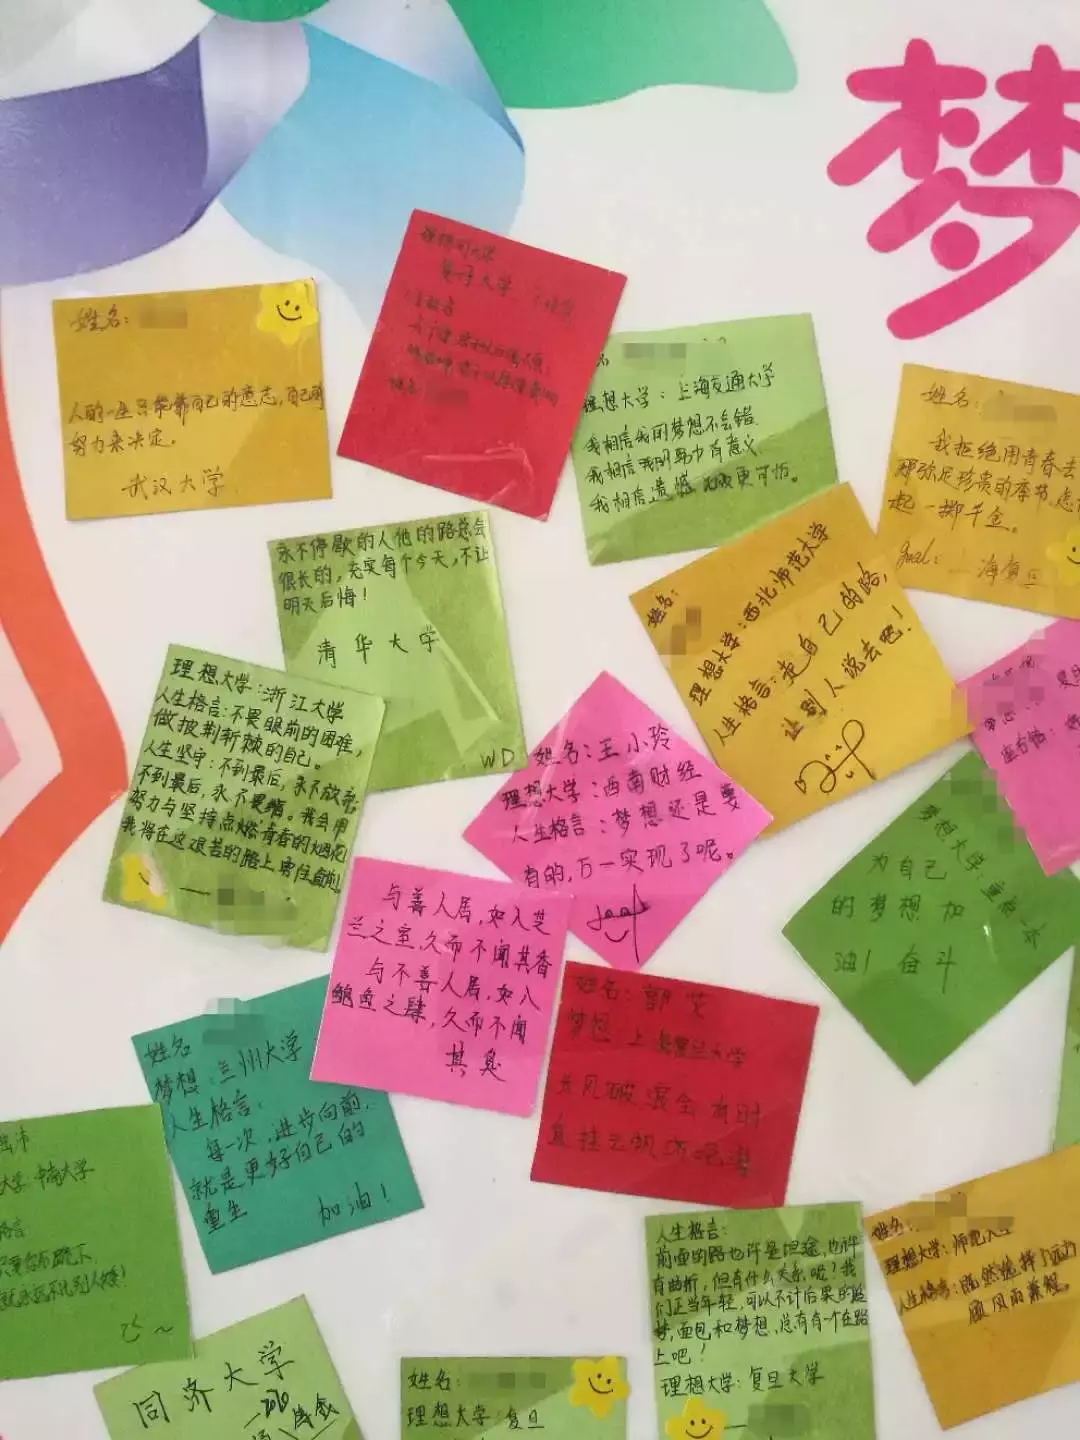 梦
姓名:
人的一生只能靠自己的意志,自己的
努力来决定。
武汉大学
大学
姓名
理想大学:上海交通大学
我相信我的梦想不会错
我相信我的努力有意义
我相信遗憾比失败更可怕。
姓名:
我拒绝用青春去
那弥足珍贵的季节,怎
起一掷千金。
goal:上海复旦
永不停歇的人他的路总会
很长的,充实每个今天,不让
明天后悔!
清华大学
WD
姓名:
理想大学:西北师范大学
人生格言:走自己的路,
让别人说去吧!
理想大学:浙江大学
人生格言:不畏眼前的困难,
做披荆斩棘的自己。
人生坚守:不到最后,永不放弃;
不到最后,永不畏缩。我会用
努力与坚持点燃青春的烟花
我将在这艰苦的路上勇往直前。
姓名:王小玲
理想大学:西南财经
人生格言:梦想还是要
有的,万一实现了呢。
座右铭:
梦想大学重庆大
为自己
的梦想加
油!奋斗
与善人居,如入芝
兰之室,久而不闻其香
与不善人居,如入
鲍鱼之肆,久而不闻
其臭
姓名:郭芷
梦想 上海复旦大学
长风破浪会有时
直挂云帆济沧海
姓名
梦想:兰州大学
人生格言:
每一次,进步向前,
就是更好自己的
重生 加油!
大学 中南大学
格言
只要你不跪下
人生格言:
前面的路也许是坦途,也许
有曲折,但有什么关系呢?我
们正当年轻,可以不计后果的追
梦,面包和梦想,总有有一个在路
上吧!
理想大学:复旦大学
姓名:
理想大学:师范大学
人生格言:既然选择了远方
风雨兼程。
同济大学
姓名:
理想大学:复旦